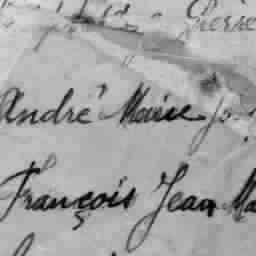 Pierre
André Maire Jo
François Jean Ma